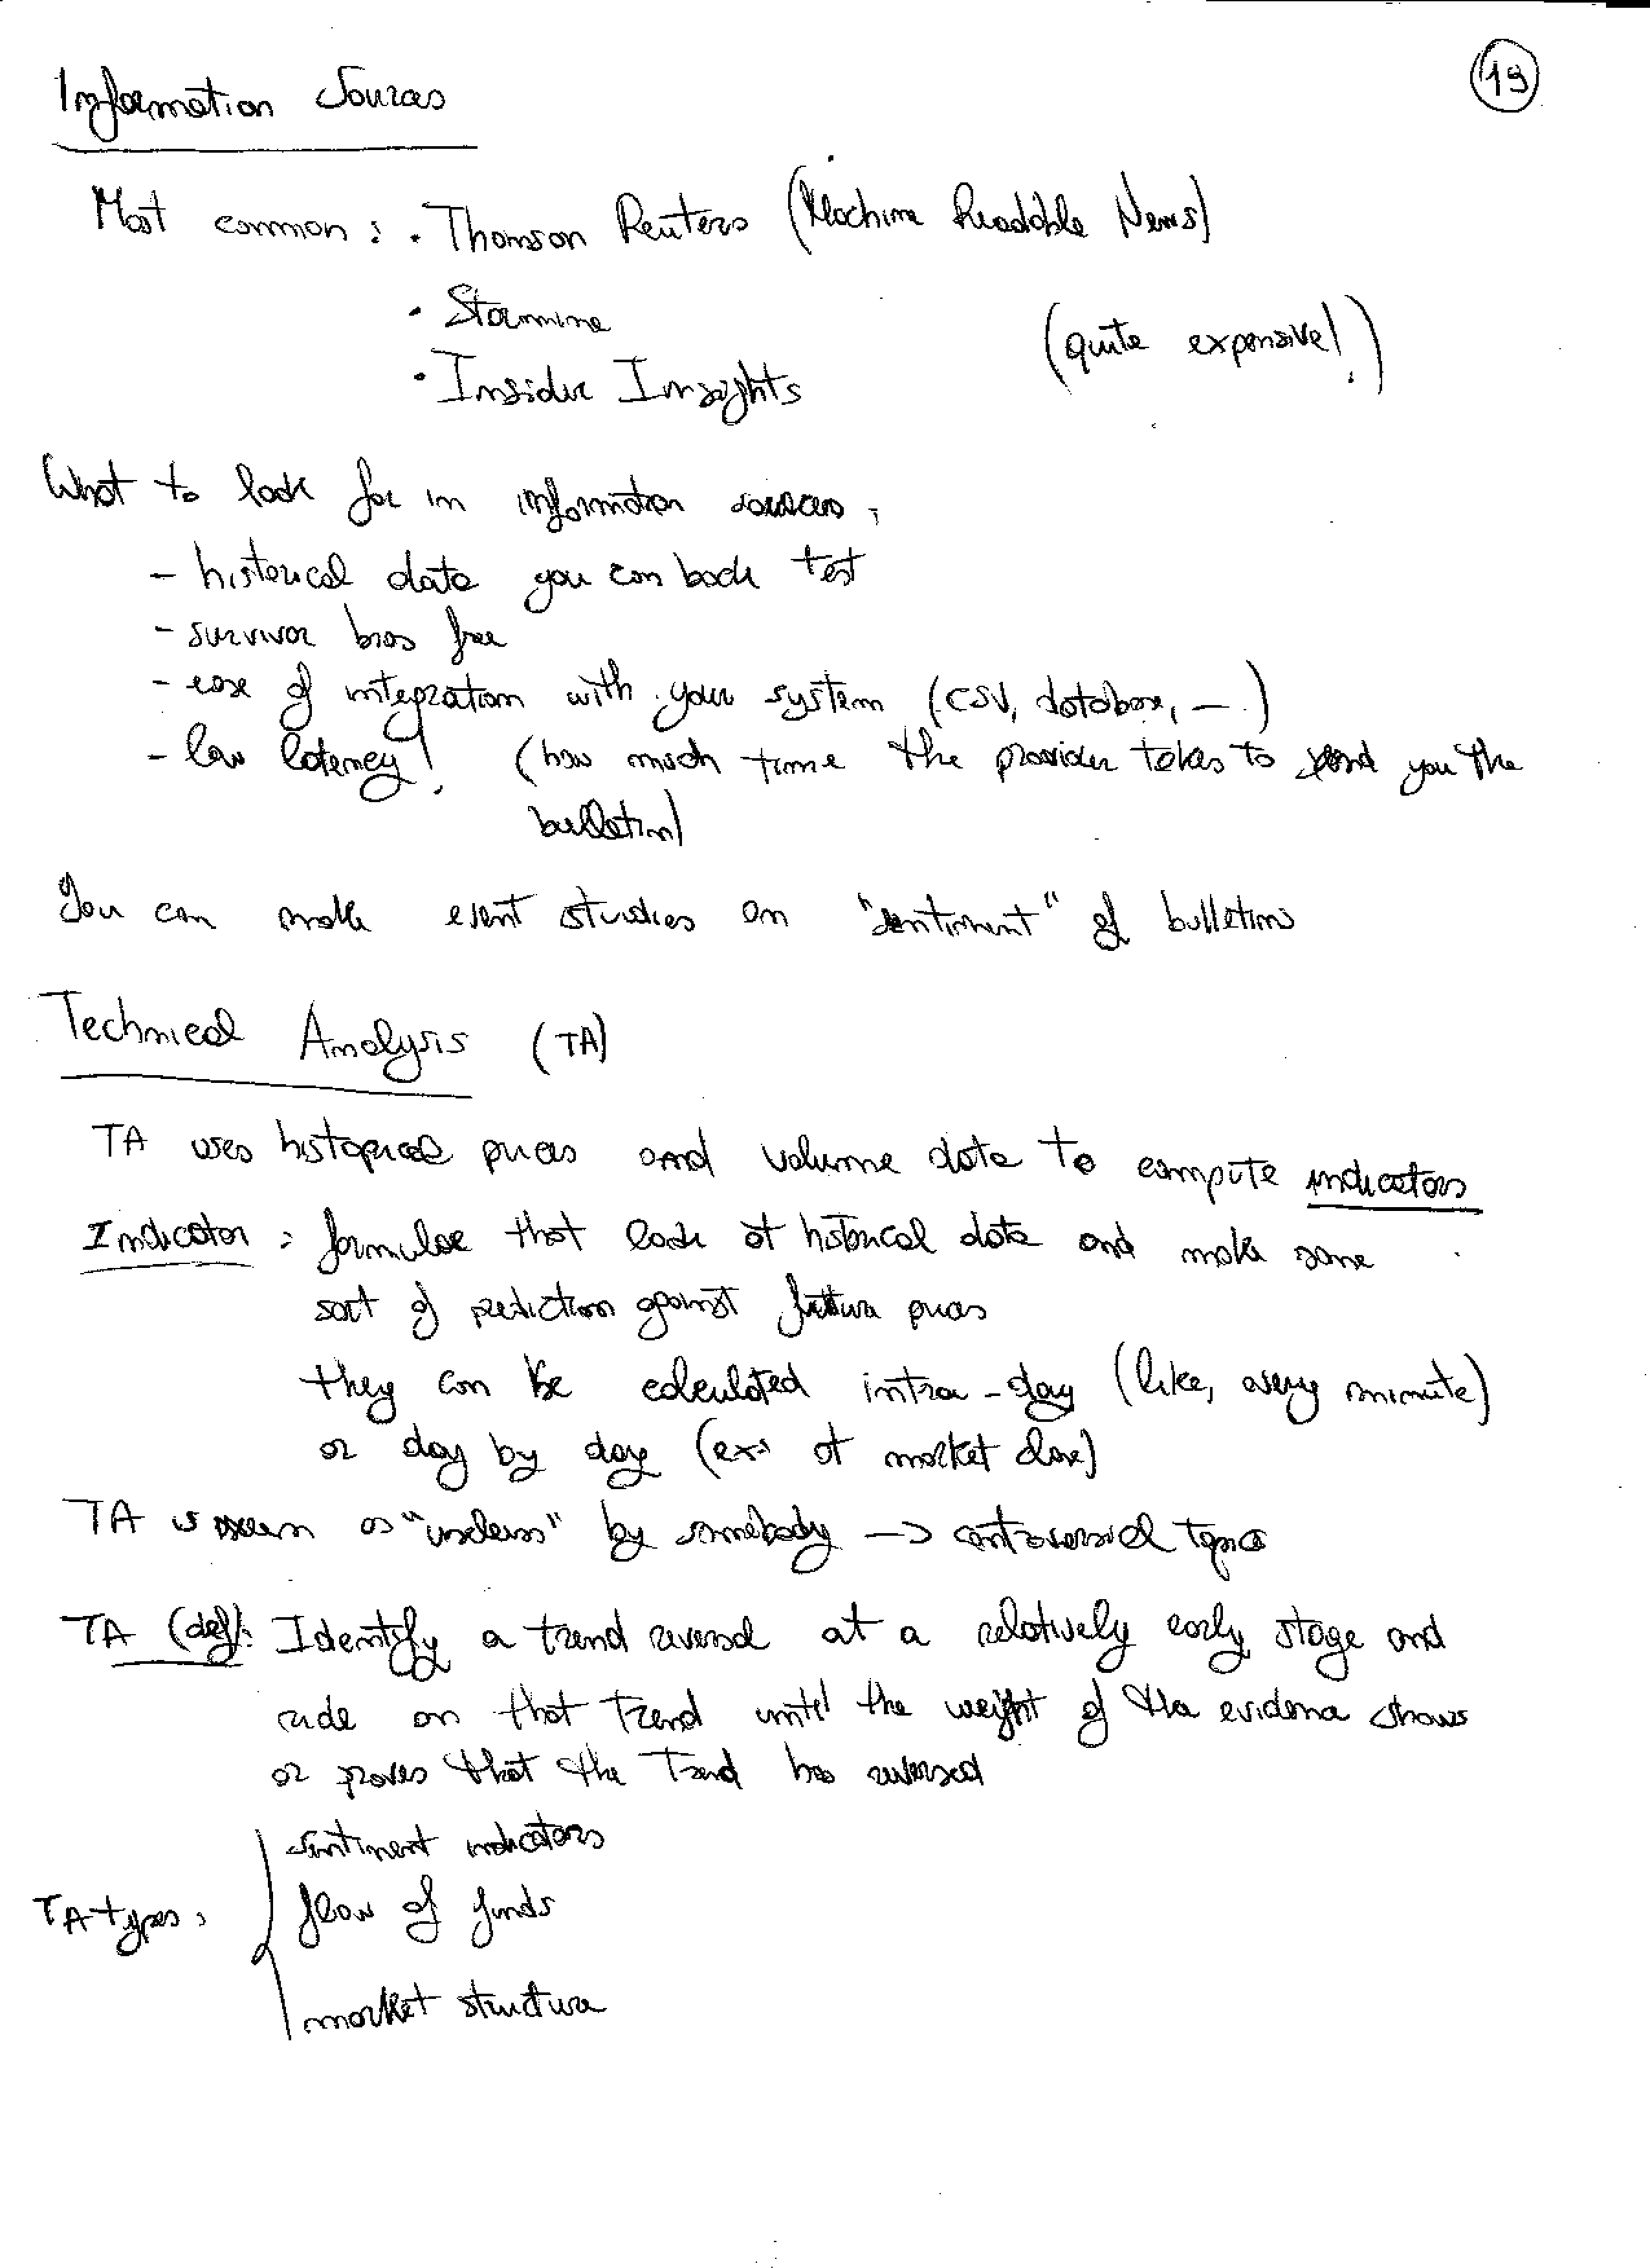 19
Information Sources
Most common: • Thomson Reuters (Machine Readable News)
• Starmine
(quite expensive!)
• Insider Insights
What to look for in information sources:
- historical data you can back test
- survivor bias free
- ease of integration with your system (CSV, database, ...)
- low latency! (how much time the provider takes to send you the
bulletin)
You can make event studies on "sentiment" of bulletins
Technical Analysis (TA)
TA uses historical prices and volume data to compute indicators
Indicator: formulae that look at historical data and make some
sort of prediction against future prices
they can be calculated intra-day (like, every minute)
or day by day (ex: at market close)
TA is seen as "useless" by somebody -> controversial topics
TA (def): Identify a trend reversal at a relatively early stage and
ride on that trend until the weight of the evidence shows
or proves that the trend has reversed
sentiment indicators
TA types: flow of funds
market structure